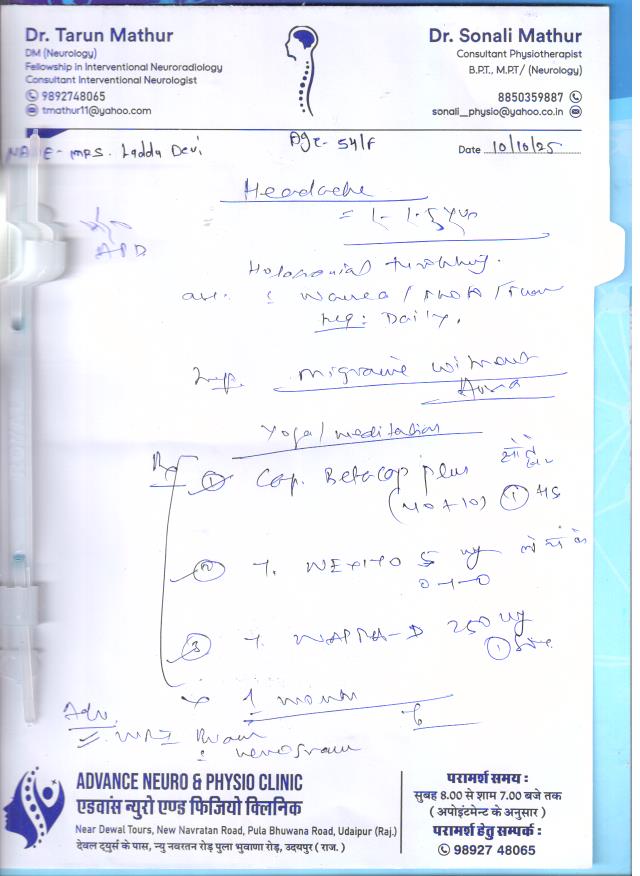 Dr. Tarun Mathur
DM (Neurology)
Fellowship in Interventional Neuroradiology
Consultant Interventional Neurologist
9892748065
tmathur11@yahoo.com
Dr. Sonali Mathur
Consultant Physiotherapist
B.P.T., M.P.T/ (Neurology)
8850359887
sonali_physio@yahoo.co.in
NAME - MRS. Laddu Devi
Age - 54/F
Date 10/10/25
Headache
= 1-1.5 yrs
APD
Holocranial throbbing.
: Nausea / Phot /
freq: Daily.
Imp. Migraine without
Aura
Yoga/meditation
Rx ① Cap. Betacap plus
(40+10) ① HS
② T. NEXITO 5 mg
0-1-0
③ T. NAPRA-D 250 mg
① SOS
x 1 month
Adv.
MRI Brain
: Venogram
ADVANCE NEURO & PHYSIO CLINIC
एडवांस न्युरो एण्ड फिजियो क्लिनिक
Near Dewal Tours, New Navratan Road, Pula Bhuwana Road, Udaipur (Raj.)
देवल ट्युर्स के पास, न्यु नवरतन रोड़ पुला भुवाणा रोड़, उदयपुर ( राज. )
परामर्श समय :
सुबह 8.00 से शाम 7.00 बजे तक
( अपोइंटमेन्ट के अनुसार )
परामर्श हेतु सम्पर्क :
98927 48065